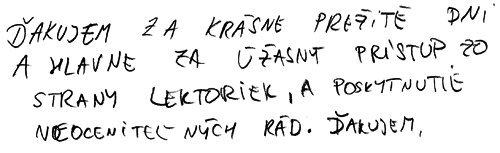 ĎAKUJEM ZA KRÁSNE PREŽITÉ DNI
A HLAVNE ZA ÚŽASNÝ PRÍSTUP ZO
STRANY LEKTORIEK, A POSKYTNUTIE
NEOCENITEĽNÝCH RÁD. ĎAKUJEM,